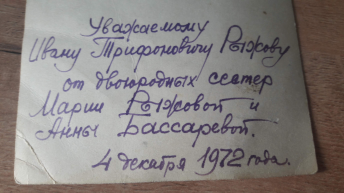 Уважаемому
Ивану Трифоновичу Рыжову
от двоюродных сестер
Марии Рыжовой и
Анны Бассаревой.
4 декабря 1972 года.